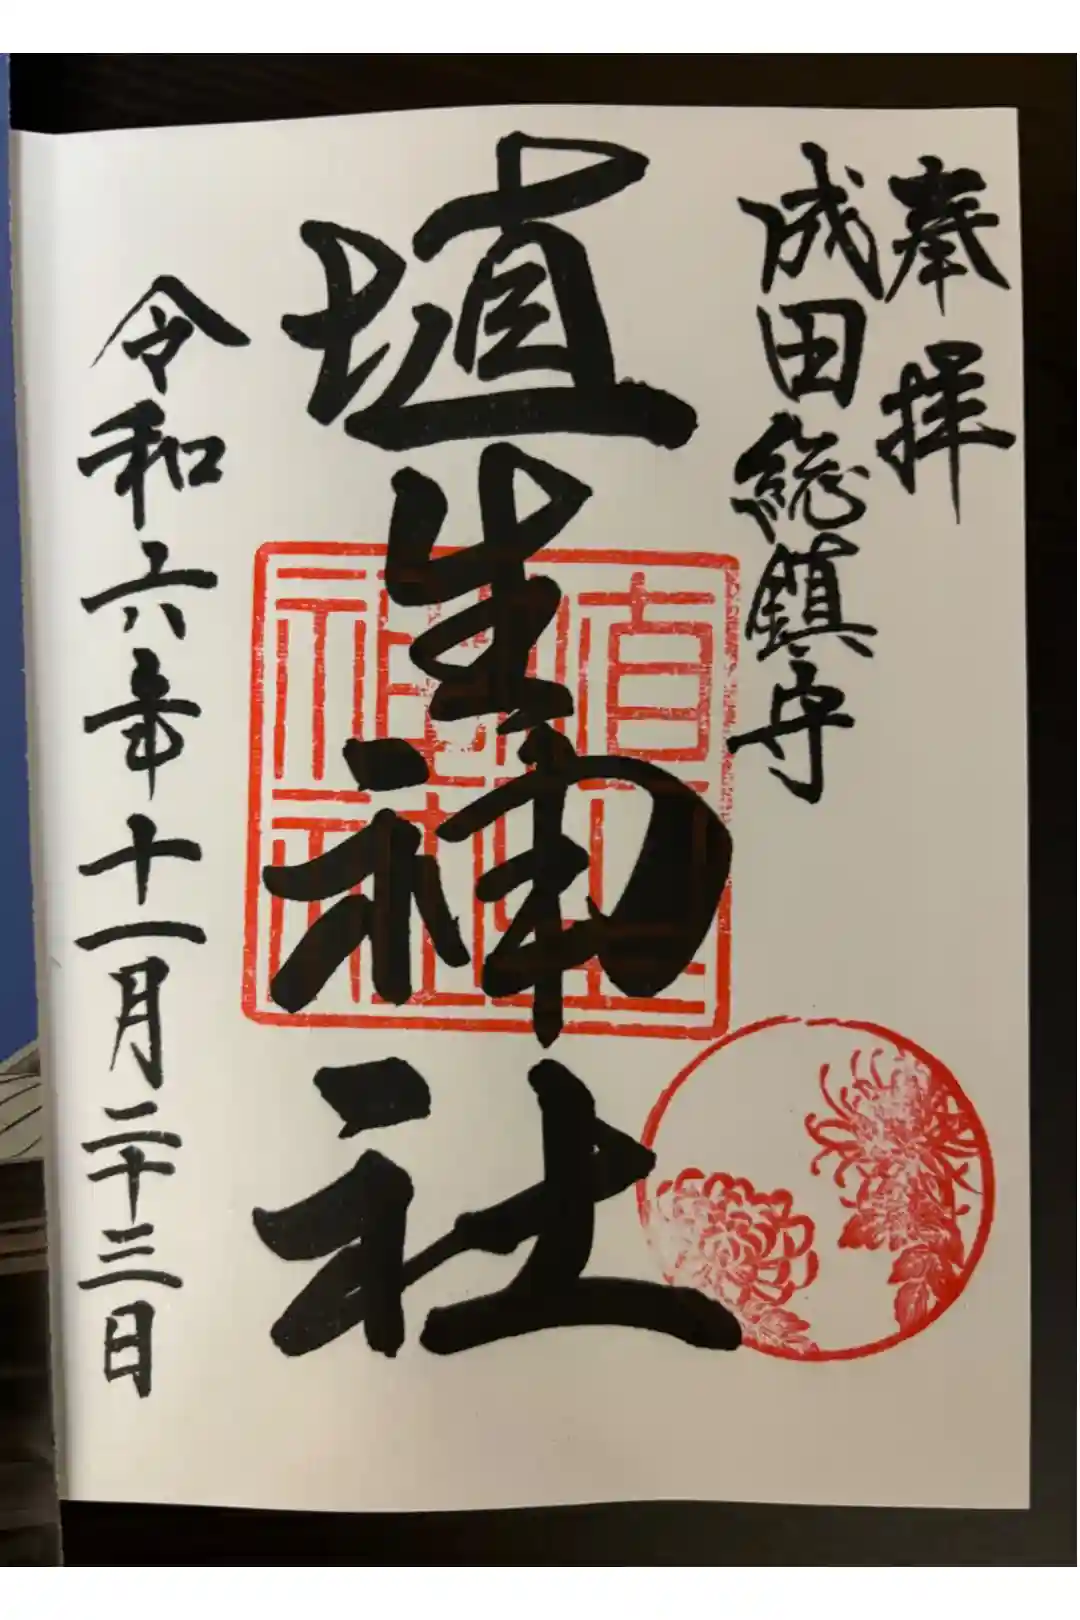 奉拝
成田総鎮守
埴生神社
埴生神社
令和六年十一月二十三日